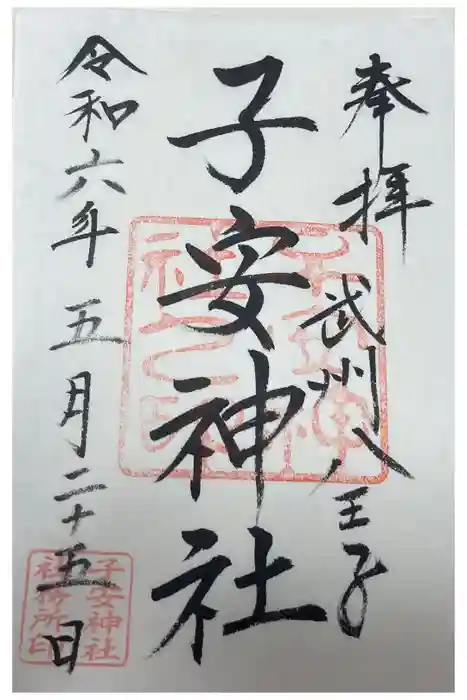 奉拝
武州八王子
子安神社
令和六年 五月二十五日
子安神社
社務所印